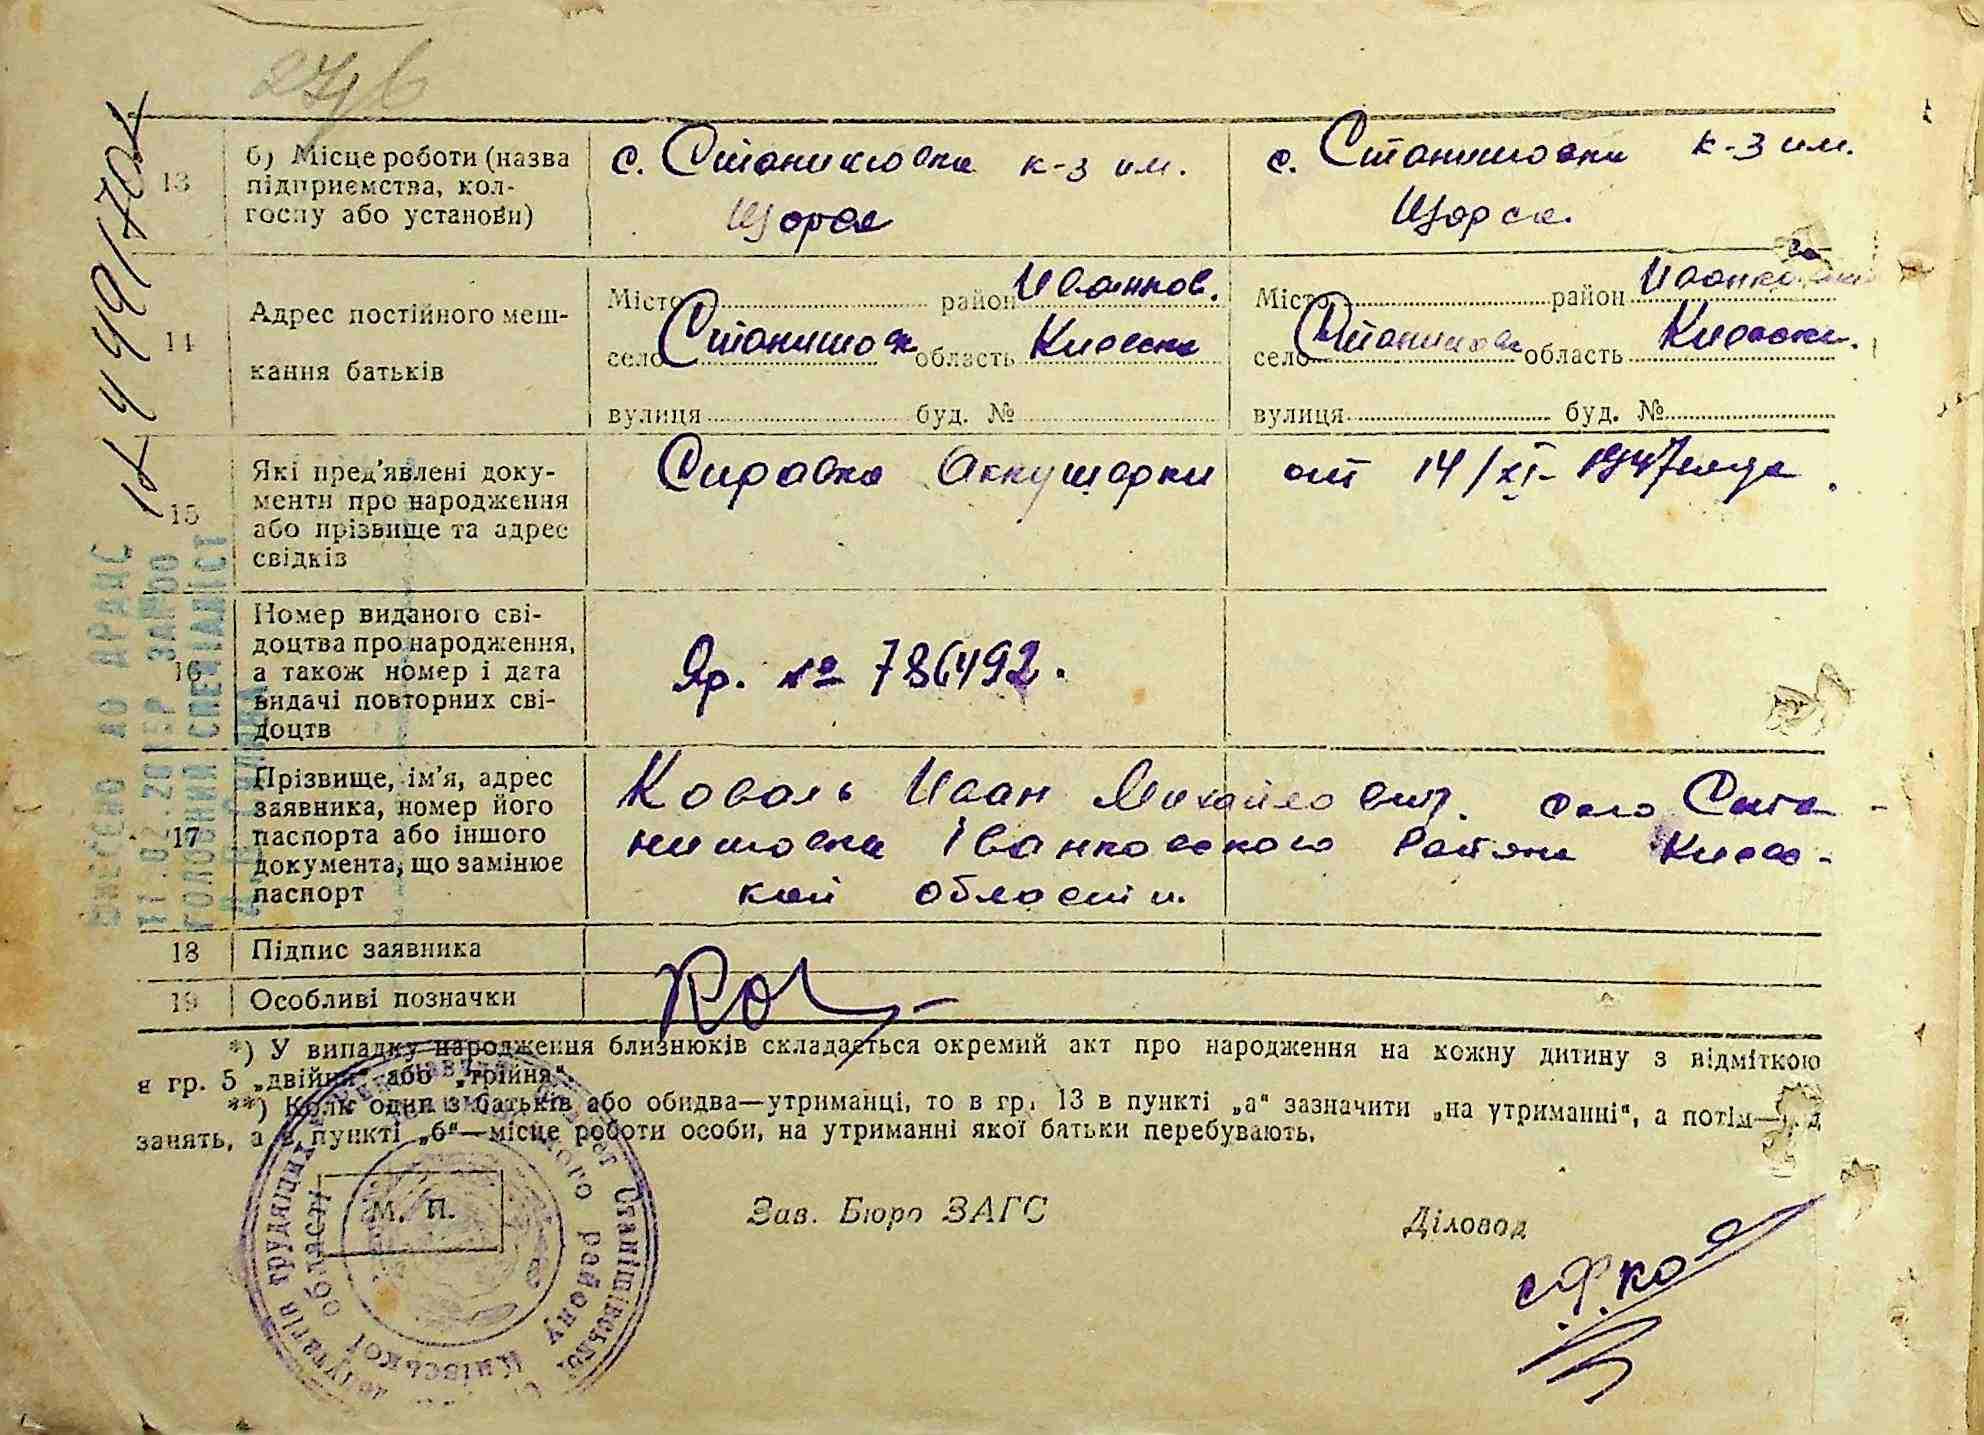 274в
13
б) Місце роботи (назва
підприємства, кол-
госпу або установи)
с. Станишовка к-з им.
Щорса
с. Станишовки к-з им.
Щорса.
14
Адрес постійного меш-
кання батьків
Місто район Иванков.
село Станишовк область Киевска
вулиця буд. №
Місто район Иванковски
село Станишовк область Киевски.
вулиця буд. №
15
Які пред'явлені доку-
менти про народження
або прізвище та адрес
свідків
Справка Аккушерки от 14/XI- 1947 года.
16
Номер виданого сві-
доцтва про народження,
а також номер і дата
видачі повторних сві-
доцтв
Яр. № 786492.
17
Прізвище, ім'я, адрес
заявника, номер його
паспорта або іншого
документа, що замінює
паспорт
Коваль Иван Михайлович. село Ста-
нишовка Іванковского Района Киевс-
кой области.
18
Підпис заявника
19
Особливі позначки
Ков
*) У випадку народження близнюків складається окремий акт про народження на кожну дитину з відміткою
в гр. 5 „двійни“ або „трійня“.
**) Коли один з батьків або обидва—утриманці, то в гр. 13 в пункті „а“ зазначити „на утриманні“, а потім—рід
занять, а в пункті „б“—місце роботи особи, на утриманні якої батьки перебувають.
М. П.
Зав. Бюро ЗАГС
Діловод
Станішівської
депутатів трудящих
району Київської області
ВНЕСЕНО ДО ДРАЦС
ГОЛОВНИЙ СПЕЦІАЛІСТ